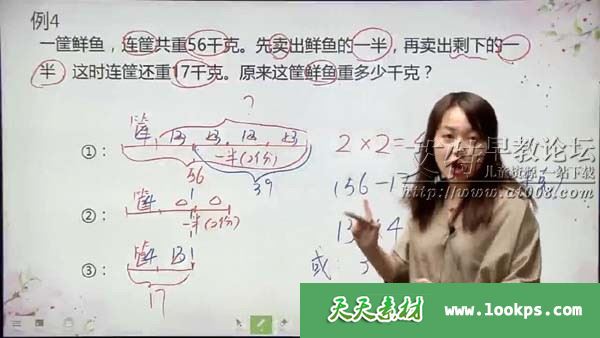 例4
一筐鲜鱼，连筐共重56千克。先卖出鲜鱼的一半，再卖出剩下的一
半 这时连筐还重17千克。原来这筐鲜鱼重多少千克？
?
①： 筐4 13 13 13 13
一半(2份)
56 39
②： 筐4
一半(2份)
③： 筐4 13
17
2×2=4
(56-17
13 4
或:
早教论坛
儿童资源一站下载
天天素材 www.lookps.com